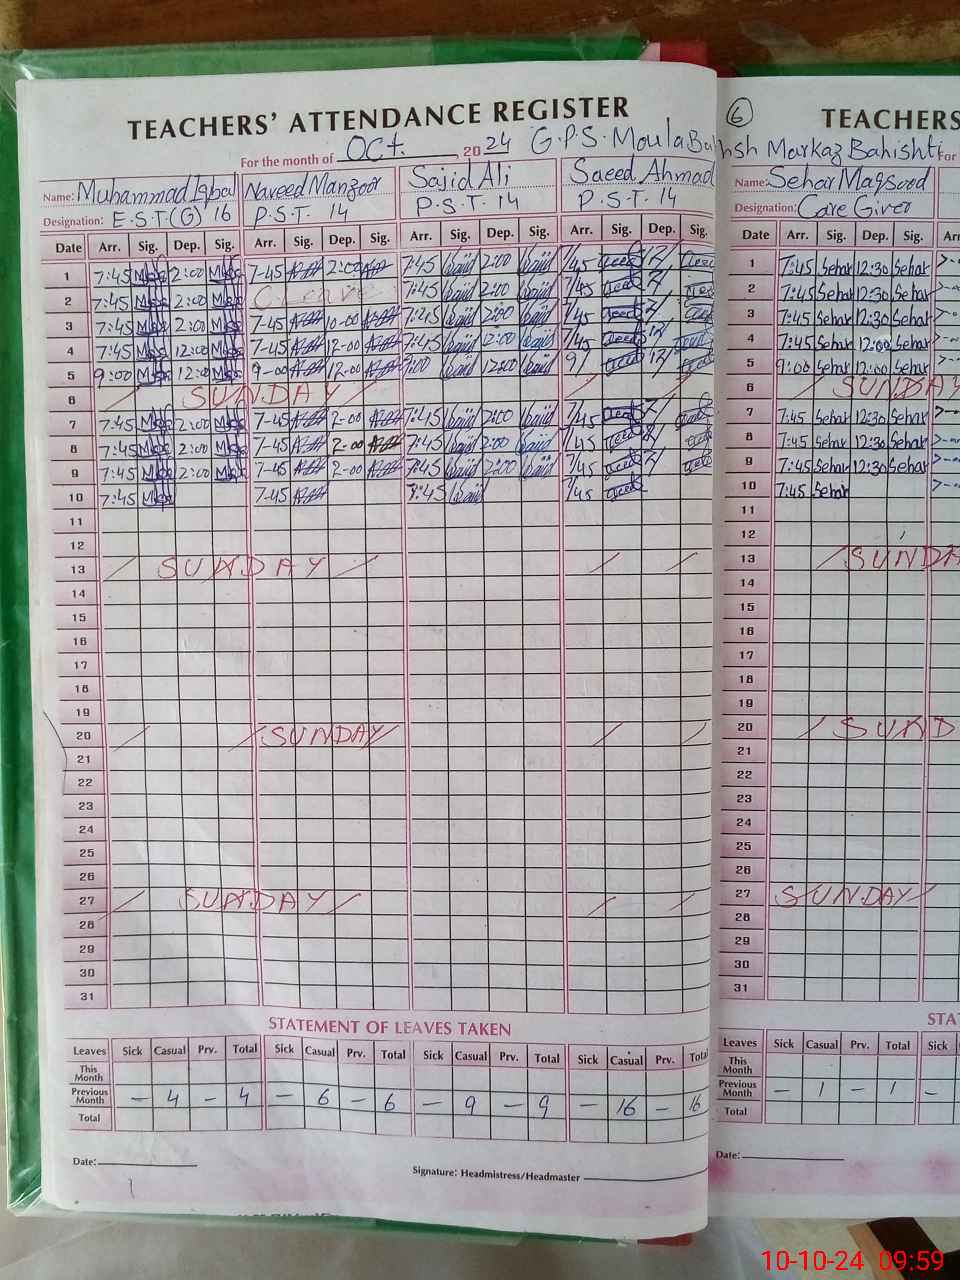 TEACHERS' ATTENDANCE REGISTER
For the month of Oct. 2024 G.P.S. Moula Bahsh Markaz Bahishti
Name: Muhammad Iqbal Naveed Manzoor Sajid Ali Saeed Ahmad
Designation: E.S.T(G) 16 P.S.T. 14 P.S.T 14 P.S.T. 14
Date Arr. Sig. Dep. Sig. Arr. Sig. Dep. Sig. Arr. Sig. Dep. Sig. Arr. Sig. Dep. Sig.
1 7:45 2:00 7-45 2:00 7:45 Sajid 2:00 Sajid 7/45
2 7:45 2:00 C-Leave 7:45 Sajid 2:00 Sajid 7/45
3 7:45 2:00 7-45 10-00 7:45 Sajid 2:00 Sajid 7/45
4 7:45 12:00 7-45 12-00 7:45 Sajid 12:00 Sajid 7/45
5 9:00 12:00 9-00 12-00 9:00 Sajid 12:00 Sajid 9/
6 SUNDAY
7 7:45 2:00 7-45 2-00 7:45 Sajid 2:00 Sajid 7/45
8 7:45 2:00 7-45 2-00 7:45 Sajid 2:00 Sajid 7/45
9 7:45 2:00 7-45 2-00 7:45 Sajid 2:00 Sajid 7/45
10 7:45 7-45 7:45 Sajid 7/45
11
12
13 SUNDAY
14
15
16
17
18
19
20 SUNDAY
21
22
23
24
25
26
27 SUNDAY
28
29
30
31
STATEMENT OF LEAVES TAKEN
Leaves Sick Casual Prv. Total Sick Casual Prv. Total Sick Casual Prv. Total Sick Casual Prv. Total
This Month
Previous Month - 4 - 4 - 6 - 6 - 9 - 9 - 16 - 16
Total
Date:
Signature: Headmistress/Headmaster
6 TEACHERS
For
Name: Sehar Maqsood
Designation: Care Giver
Date Arr. Sig. Dep. Sig. Arr
1 7:45 Sehar 12:30 Sehar
2 7:45 Sehar 12:30 Sehar
3 7:45 Sehar 12:30 Sehar
4 7:45 Sehar 12:00 Sehar
5 9:00 Sehar 12:00 Sehar
6 SUNDAY
7 7:45 Sehar 12:30 Sehar
8 7:45 Sehar 12:30 Sehar
9 7:45 Sehar 12:30 Sehar
10 7:45 Sehar
11
12
13 SUNDA
14
15
16
17
18
19
20 SUND
21
22
23
24
25
26
27 SUNDAY
28
29
30
31
STA
Leaves Sick Casual Prv. Total Sick
This Month
Previous Month 1 - 1 -
Total
Date:
10-10-24 09:59